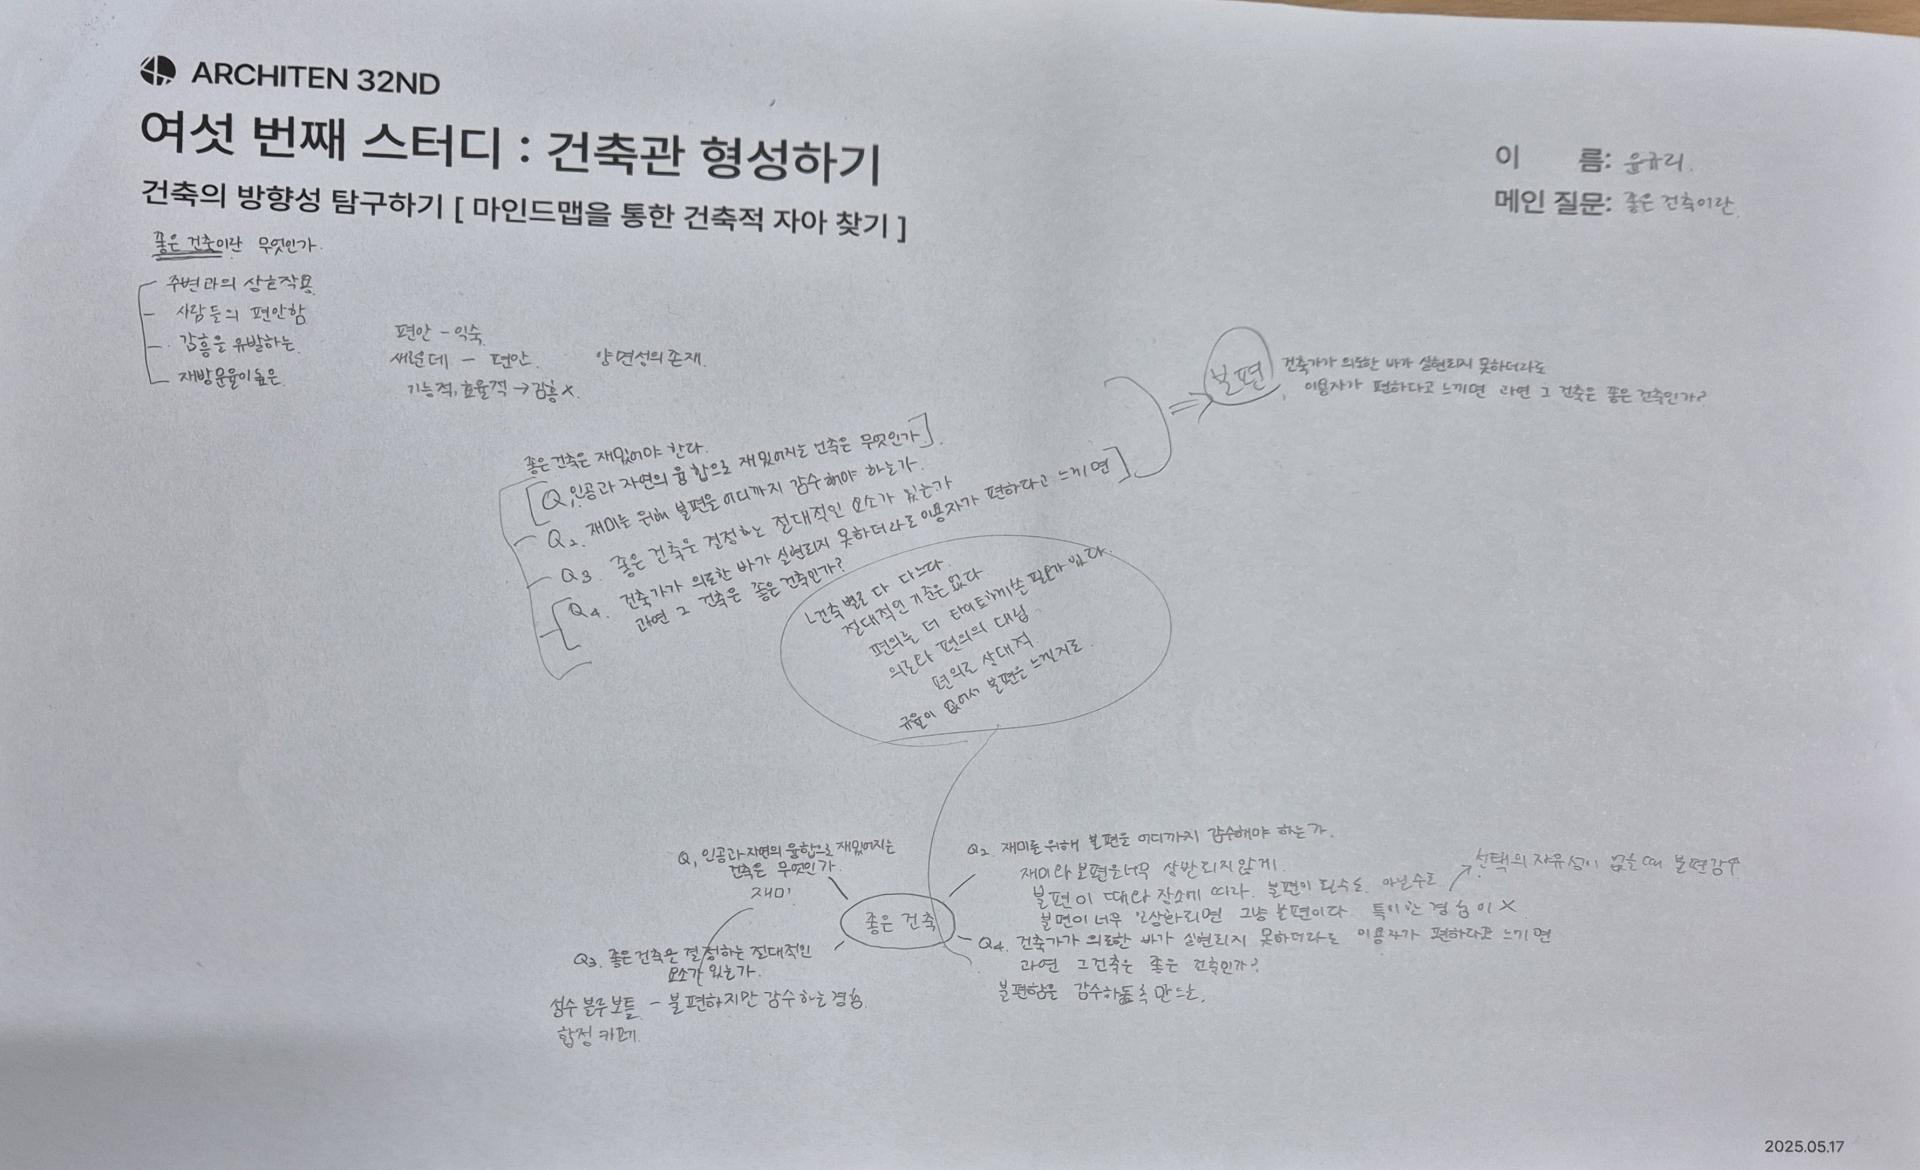 ARCHITEN 32ND
여섯 번째 스터디 : 건축관 형성하기
건축의 방향성 탐구하기 [ 마인드맵을 통한 건축적 자아 찾기 ]
이 름: 윤규리.
메인 질문: 좋은 건축이란.
좋은 건축이란 무엇인가.
주변과의 상호작용
사람들의 편안함
감흥을 유발하는
재방문율이 높은.
편안 - 익숙
새러운데 - 편안. 양면성의 존재.
기능적, 효율적 → 감흥 X.
불편
건축가가 의도한 바가 실현되지 못하더라도
이용자가 편하다고 느끼면 과연 그 건축은 좋은 건축인가?
좋은 건축은 재밌어야 한다.
Q1. 인공과 자연의 융합으로 재밌어지는 건축은 무엇인가.
Q2. 재미를 위해 불편을 어디까지 감수해야 하는가.
Q3. 좋은 건축을 결정하는 절대적인 요소가 있는가
Q4. 건축가가 의도한 바가 실현되지 못하더라도 이용자가 편하다고 느끼면
과연 그 건축은 좋은 건축인가?
ㄴ건축별로 다 다르다.
절대적인 기준은 없다
편의를 더 타이트하게 쓴 필요가 있다.
의도와 편의의 대립
편의로 상대적.
규율이 없어서 불편을 느낄지도.
좋은 건축
Q1. 인공과 자연의 융합으로 재밌어지는
건축은 무엇인가.
재미!
Q2. 재미를 위해 불편을 어디까지 감수해야 하는가.
재미와 불편을 너무 상반되지 않게.
불편이 때와 장소에 따라. 불편이 될수도 아닐수도
선택의 자유성이 없을 때 불편감수
불편이 너무 일상화되면 그냥 불편이다. 특이한 경험이 X
Q3. 좋은 건축을 결정하는 절대적인
요소가 있는가.
성수 블루보틀 - 불편하지만 감수하는 경험.
합정 카페.
Q4. 건축가가 의도한 바가 실현되지 못하더라도 이용자가 편하다고 느끼면
과연 그건축은 좋은 건축인가?
불편함을 감수하도록 만드는.
2025.05.17